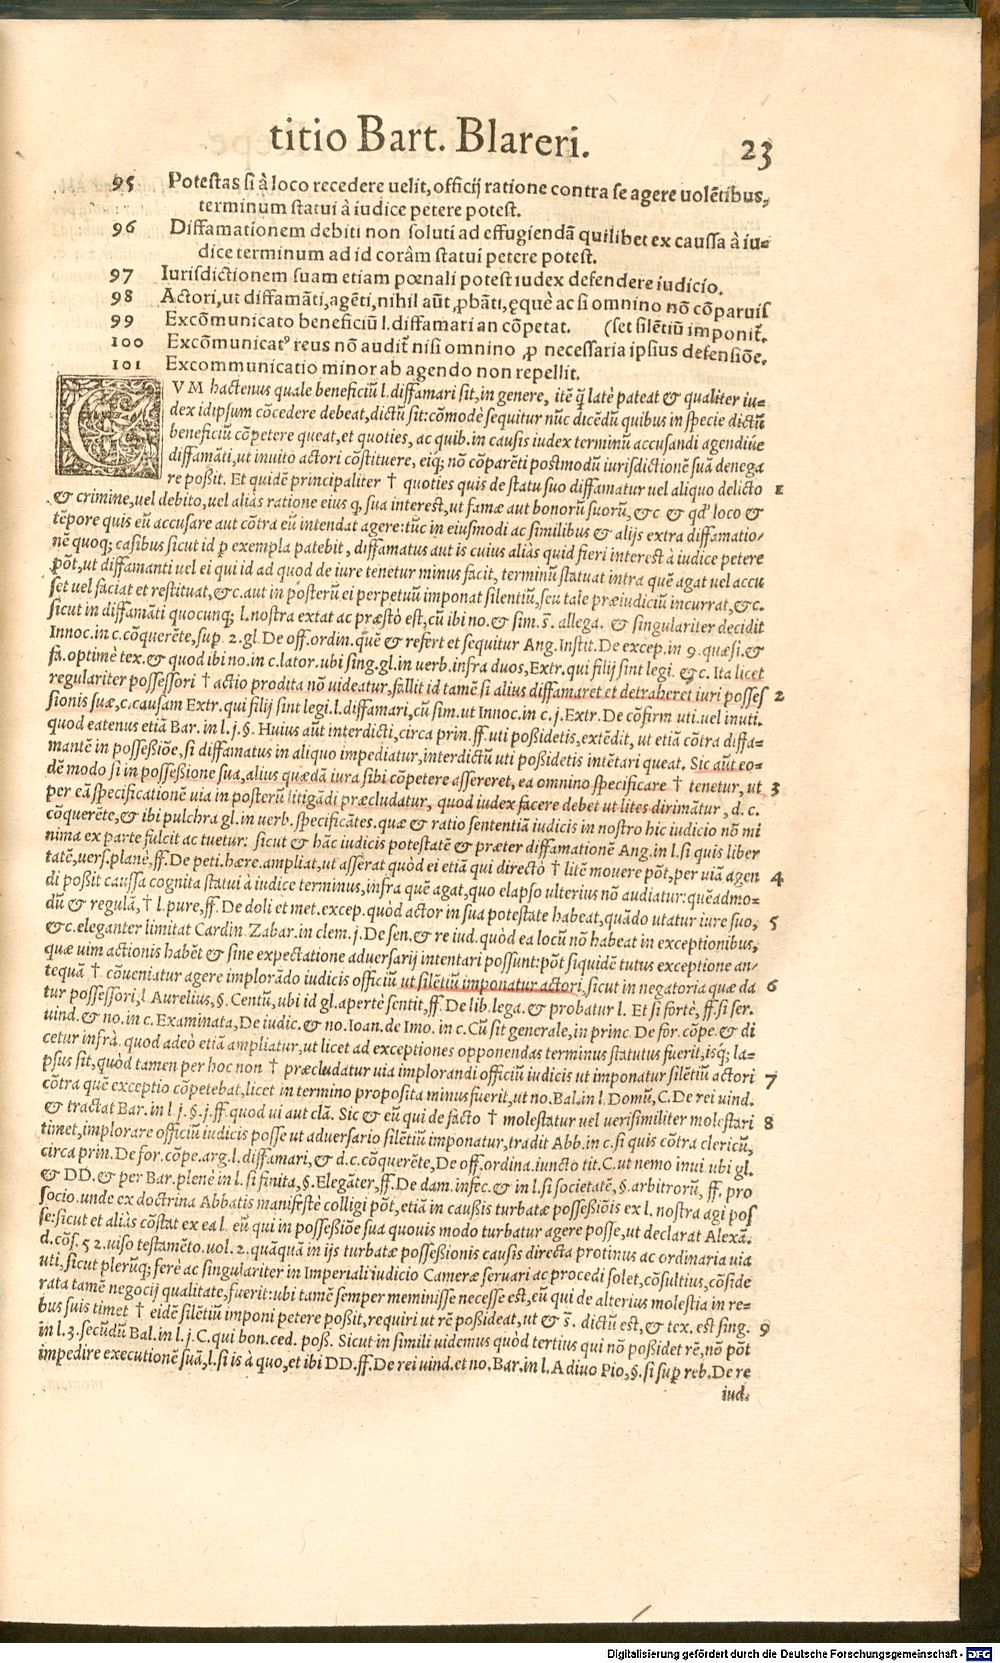 titio Bart. Blareri. 23
95 Potestas si à loco recedere uelit, officij ratione contra se agere uolētibus,
terminum statui à iudice petere potest.
96 Diffamationem debiti non soluti ad effugiendā quilibet ex caussa à iu=
dice terminum ad id corâm statui petere potest.
97 Iurisdictionem suam etiam pœnali potest iudex defendere iudicio.
98 Actori, ut diffamāti, agēti, nihil aūt ꝓbāti, ęquè ac si omnino nō cōparuis
99 Excōmunicato beneficiū l. diffamari an cōpetat. (set silētiū imponit̄.
100 Excōmunicatꝰ reus nō audit̄ nisi omnino ꝓ necessaria ipsius defensiōe.
101 Excommunicatio minor ab agendo non repellit.
CVM hactenus quale beneficiū l. diffamari sit, in genere, itē q̄ latè pateat & qualiter iu=
dex idipsum cōcedere debeat, dictū sit: cōmodè sequitur nūc dicēdū quibus in specie dictū
beneficiū cōpetere queat, et quoties, ac quib. in causis iudex terminū accusandi agendiúe
diffamāti, ut inuito actori cōstituere, eiq; nō cōparēti postmodū iurisdictionē suā denega
re poßit. Et quidē principaliter † quoties quis de statu suo diffamatur uel aliquo delicto 1
& crimine, uel debito, uel aliâs ratione eius q, sua interest, ut famæ aut bonorū suorū, &c & qd' loco &
tēpore quis eū accusare aut cōtra eū intendat agere: tūc in eiusmodi ac similibus & alijs extra diffamatio-
nē quoq; casibus sicut id ꝑ exempla patebit, diffamatus aut is cuius aliàs quid fieri interest à iudice petere
pōt, ut diffamanti uel ei qui id ad quod de iure tenetur minus facit, terminū statuat intra quē agat uel accu
set uel faciat et restituat, &c. aut in posterū ei perpetuū imponat silentiū, seu tale præiudiciū incurrat, &c.
sicut in diffamāti quocunq; l. nostra extat ac præstò est, cū ibi no. & sim. s̄. allega. & singulariter decidit
Innoc. in c. cōquerēte, sup. 2. gl. De off. ordin. quē & refert et sequitur Ang. Instit. De excep. in 9. quæsi. &
fa. optimè tex. & quod ibi no. in c. lator. ubi sing. gl. in uerb. infra duos, Extr. qui filij sint legi. &c. Ita licet
regulariter possessori † actio prodita nō uideatur, fallit id tamē si alius diffamaret et detraheret iuri posses 2
sionis suæ, c. causam Extr. qui filij sint legi. l. diffamari, cū sim. ut Innoc. in c. j. Extr. De cōfirm uti. uel inuti.
quod eatenus etiā Bar. in l. j. §. Huius aūt interdicti, circa prin. ff. uti poßidetis, extēdit, ut etiā cōtra diffa=
mantē in posseßiōe, si diffamatus in aliquo impediatur, interdictū uti poßidetis intētari queat. Sic aūt eo=
dē modo si in posseßione sua, alius quædā iura sibi cōpetere assereret, ea omnino specificare † tenetur, ut 3
per eā specificationē uia in posterū litigādi præcludatur, quod iudex facere debet ut lites dirimātur, d. c.
cōquerēte, & ibi pulchra gl. in uerb. specificātes. quæ & ratio sententiā iudicis in nostro hic iudicio nō mi
nima ex parte fulcit ac tuetur: sicut & hāc iudicis potestatē & præter diffamationē Ang. in l. si quis liber
tatē, uers. planè, ff. De peti. hære. ampliat, ut asserat quòd ei etiā qui directò † litē mouere pōt, per uiā agen 4
di poßit caussa cognita statui à iudice terminus, infra quē agat, quo elapso ulterius nō audiatur: quēadmo-
dū & regulā, † l. pure, ff. De doli et met. excep. quòd actor in sua potestate habeat, quādo utatur iure suo, 5
&c. eleganter limitat Cardin. Zabar. in clem. j. De sen. & re iud. quòd ea locū nō habeat in exceptionibus,
quæ uim actionis habēt & sine expectatione aduersarij intentari possunt: pōt siquidē tutus exceptione an-
tequā † cōueniatur agere implorādo iudicis officiū ut silētiū imponatur actori, sicut in negatoria quæ da 6
tur possessori, l. Aurelius, §. Centū, ubi id gl. apertè sentit, ff. De lib. lega. & probatur l. Et si fortè, ff. si ser.
uind. & no. in c. Examinata, De iudic. & no. Ioan. de Imo. in c. Cū sit generale, in princ. De for. cōpe. & di
cetur infrà. quod adeò etiā ampliatur, ut licet ad exceptiones opponendas terminus statutus fuerit, isq; la-
psus sit, quòd tamen per hoc non † præcludatur uia implorandi officiū iudicis ut imponatur silētiū actori 7
cōtra quē exceptio cōpetebat, licet in termino proposita minus fuerit, ut no. Bal. in l. Domū, C. De rei uind.
& tractat Bar. in l j. §. j. ff. quod ui aut clā. Sic & eū qui de facto † molestatur uel uerisimiliter molestari 8
timet, implorare officiū iudicis posse ut aduersario silētiū imponatur, tradit Abb. in c. si quis cōtra clericū,
circa prin. De for. cōpe. arg. l. diffamari, & d. c. cōquerēte, De off. ordina. iuncto tit. C. ut nemo inui ubi gl.
& DD. & per Bar. plenè in l. si finita, §. Elegāter, ff. De dam. infec. & in l. si societatē, §. arbitrorū, ff. pro
socio. unde ex doctrina Abbatis manifestè colligi pōt, etiā in caußis turbatæ posseßiōis ex l. nostra agi pos
se: sicut et aliàs cōstat ex ea l. eū qui in posseßiōe sua quouis modo turbatur agere posse, ut declarat Alexā.
d. cōs. 52. uiso testamēto. uol. 2. quāquā in ijs turbatæ posseßionis causis directa protinus ac ordinaria uia
uti, sicut plerūq; ferè ac singulariter in Imperiali iudicio Cameræ seruari ac procedi solet, cōsultius, cōside
rata tamē negocij qualitate, fuerit: ubi tamē semper meminisse necesse est, eū qui de alterius molestia in re=
bus suis timet † eidē silētiū imponi petere poßit, requiri ut rē poßideat, ut & s̄. dictū est, & tex. est sing. 9
in l. 3. secūdū Bal. in l. j. C. qui bon. ced. poß. Sicut in simili uidemus quòd tertius qui nō poßidet rē, nō pōt
impedire executionē suā, l. si is à quo, et ibi DD. ff. De rei uind. et no. Bar. in l. A diuo Pio, §. si sup reb. De re
iud.
Digitalisierung gefördert durch die Deutsche Forschungsgemeinschaft - DFG